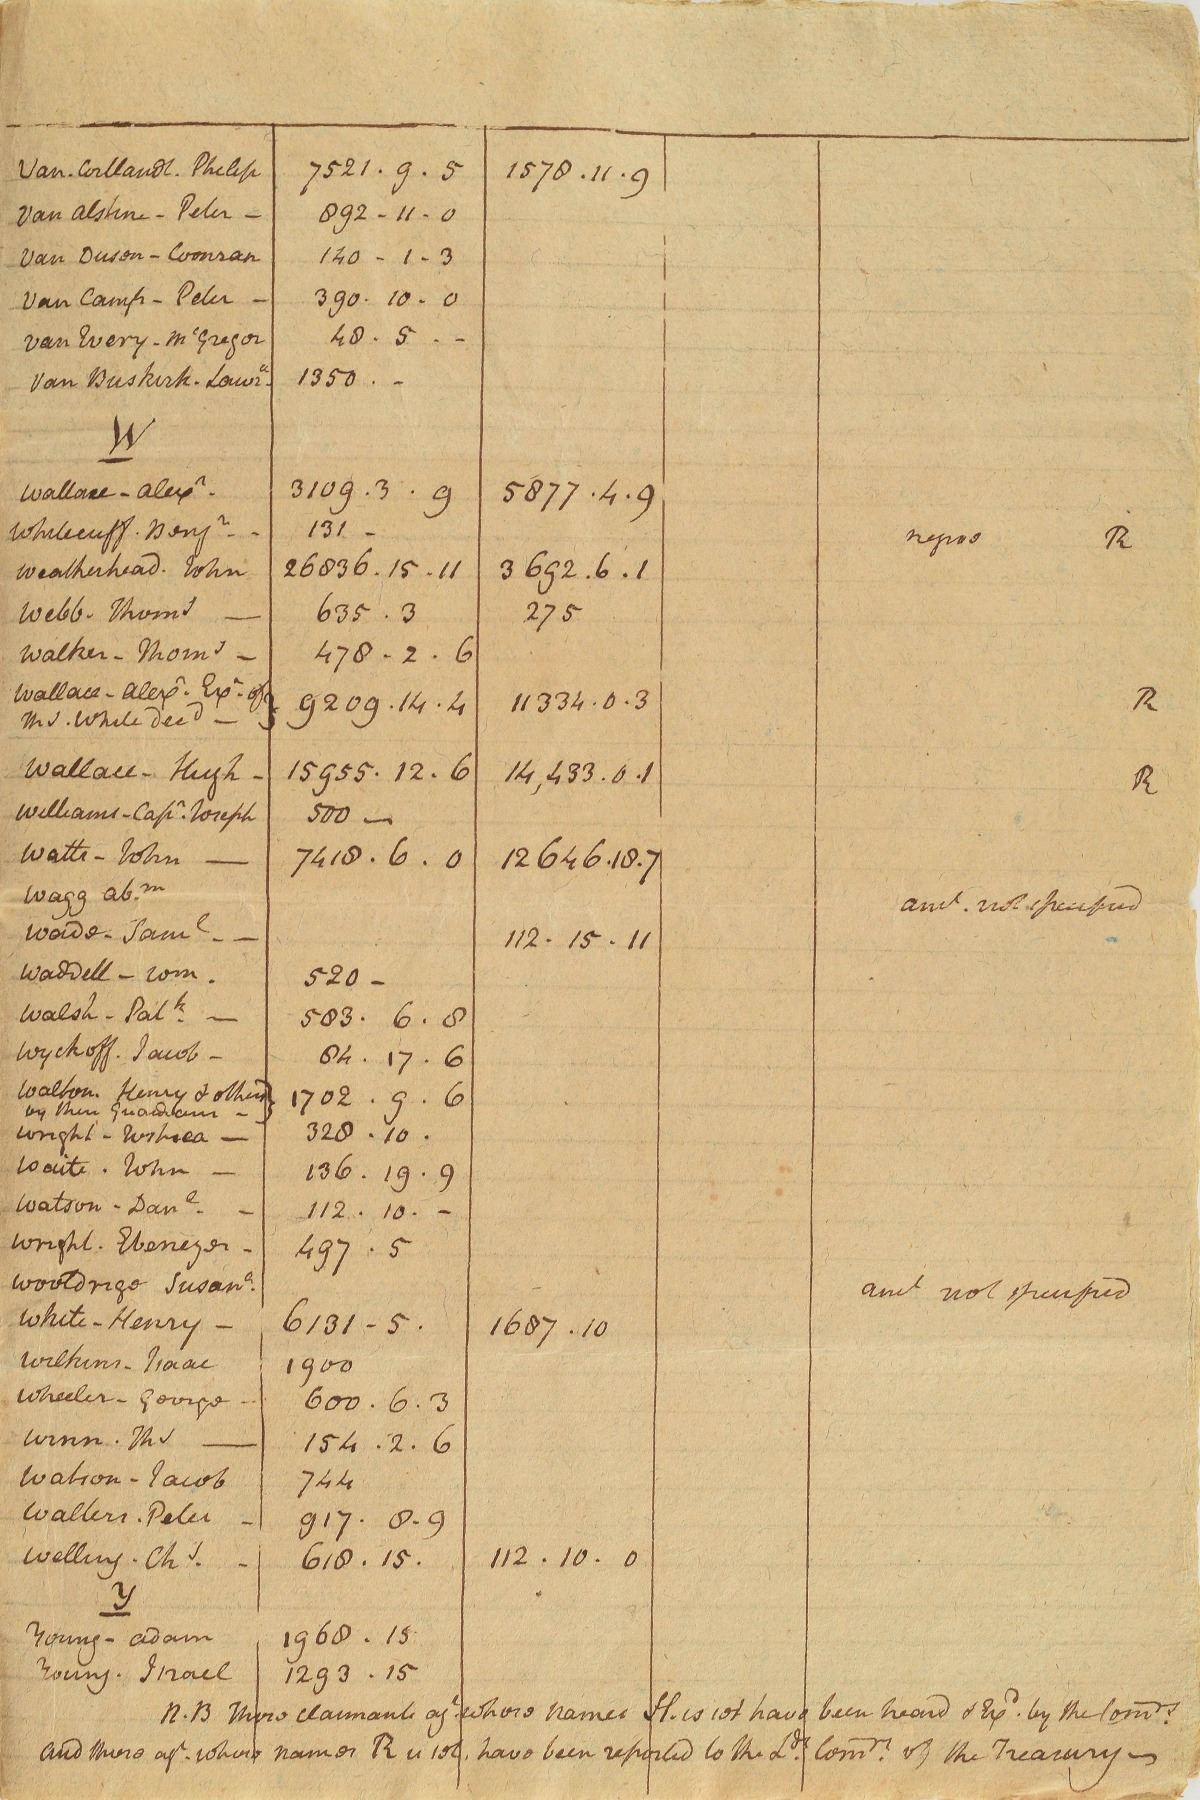 Van. Cortlandt. Philip 7521 . 9 . 5 1578 . 11 . 9
Van Alstine - Peter - 892 - 11 - 0
Van Duson - Coonran 140 - 1 - 3
Van Camp - Peter - 390 . 10 - 0
Van Every - McGregor 48 . 5 . -
Van Buskirk - Lawre. 1350 . -
W
Wallace - Alexr. 3109 . 3 . 9 5877 . 4 . 9
Whitecuff . Benjn. - 131 - negroe R
Weatherhead . John 26836 . 15 . 11 3692 . 6 . 1
Webb . Thoms — 635 . 3 275
Walker - Thoms - 478 - 2 . 6
Wallace - Alexr. Exr. of
Ths. White Decd - } 9209 . 14 . 4 11334 . 0 . 3 R
Wallace - Hugh - 15955 . 12 . 6 14,433 . 0 . 1 R
Williams - Capn. Joseph 500 —
Watts - John — 7418 . 6 . 0 12646 . 18 . 7
Wagg Abm amt. not specified
Wade - Saml. - 112 . 15 . 11
Waddell - Wm . 520 -
Walsh - Patk. — 583 . 6 . 8
Wyckoff . Jacob - 84 . 17 . 6
Walton . Henry & others
by their Guardians - } 1702 . 9 . 6
Wright - Joshua — 328 . 10 .
Waite . John — 136 . 19 . 9
Watson - Danl. - 112 . 10 . -
Wright . Ebenezer - 497 . 5
Wooldrige Susana. amt not specified
White - Henry - 6131 - 5 . 1687 . 10
Wilkins - Isaac 1900
Wheeler - George - 600 . 6 . 3
Winn . Ths — 154 . 2 . 6
Watson - Jacob 744
Walters . Peter - 917 . 8 - 9
Welling . Chs. - 618 . 15 . 112 . 10 . 0
Y
Young - Adam 1968 . 15
Young . Israel 1293 . 15
N.B Those claimants agt. whose names H. is set have been heard & Exd. by the Comrs.
and those agt. whose names R is set, have been reported to the Lds. Comrs. of the Treasury —